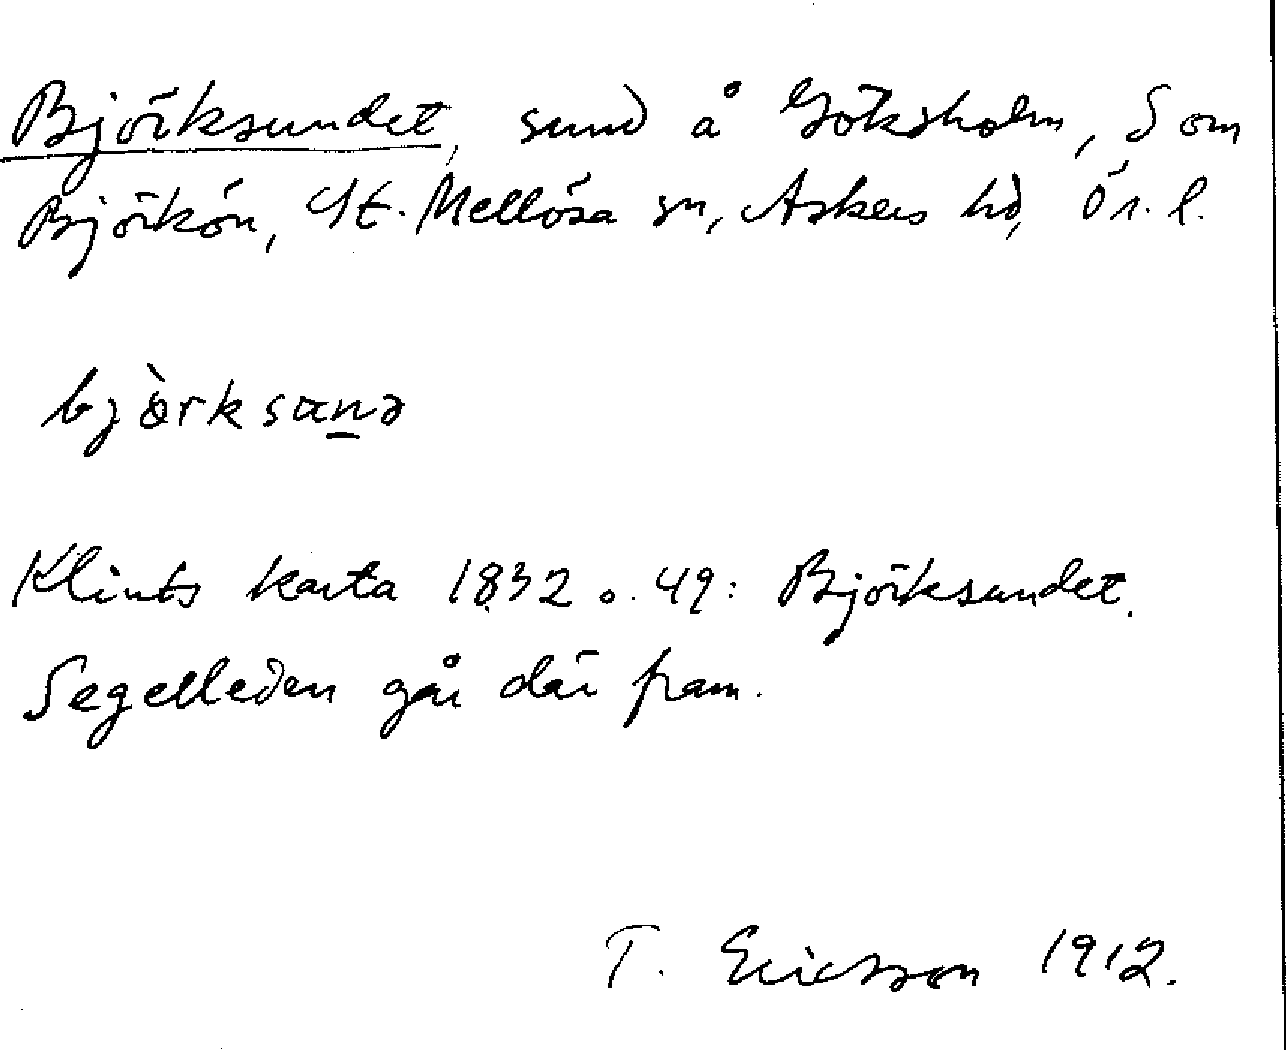 Björksundet, sund å Göksholm, S om
Björkön, St. Mellösa sn, Askers hd, Ör. l.
bjö̀rksanə
Klints karta 1832 o. 49: Björksundet.
Segelleden går där fram.
T. Ericsson 1912.